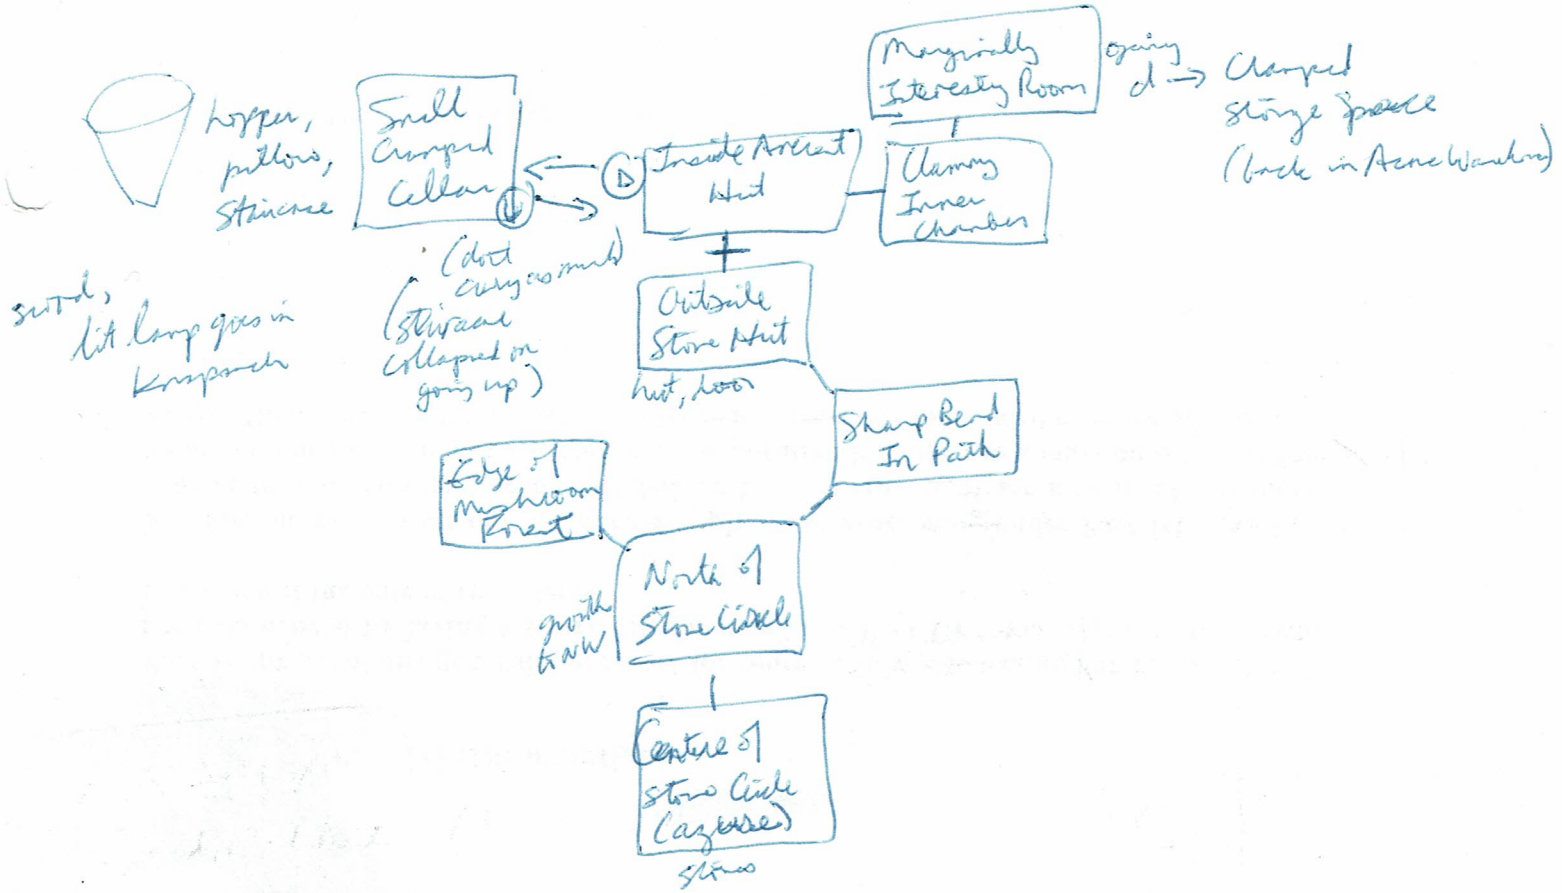 hopper,
pillow,
staircase
Small
Cramped
Cellar
Inside Ancient
Hut
Marginally
Interesting Room
d → Cramped
Storage Space
(back in Acme Warehouse)
Clammy
Inner
Chamber
sword,
lit lamp goes in
knapsack
(don't
carry as much)
(staircase
collapsed on
going up)
Outside
Stone Hut
hut, door
Sharp Bend
In Path
Edge of
Mushroom
Forest
North of
Stone Circle
growth
to NW
Centre of
Stone Circle
(azure)